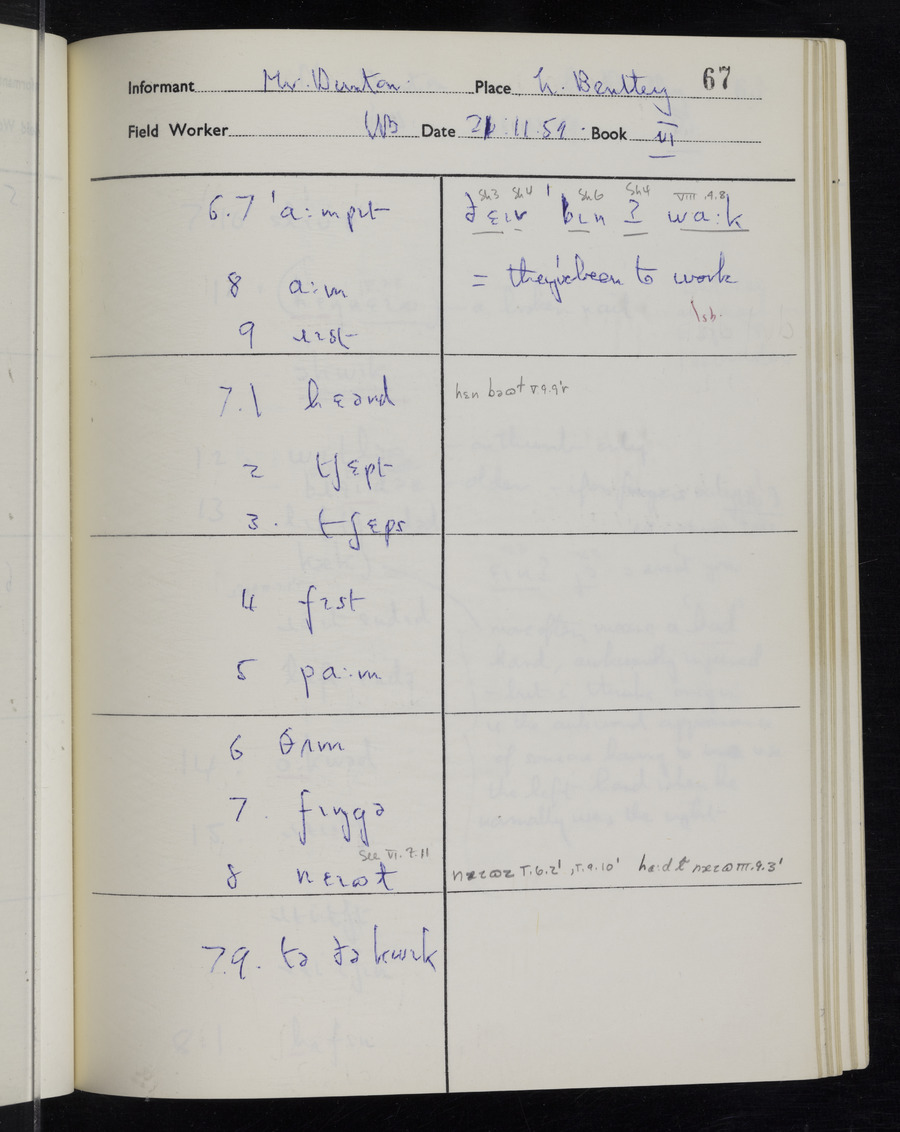 Informant Mr. Dunton. Place L. Bentley 67
Field Worker Date 21.11.59. Book VI
Sh3 Sh4 Sh6 Sh4 VIII.9.8
6.7 'ɑ:mpɪt ðɛɪv bɪn ʔ wa:k
8 ɑ:m = they've been to work
9 ɪɪst
7.1 hɛənd hɛn bəʊɫ V.9.9'
2 tʃɛpt
3. tʃɛps
4 fɪst
5 pɑ:m
6 θʌm
7. fɪŋgə
See VI.7.11
8 nɛɪʊɫ V.6.2', V.9.10' III.9.3'
7.9. tə ðə kwɪk